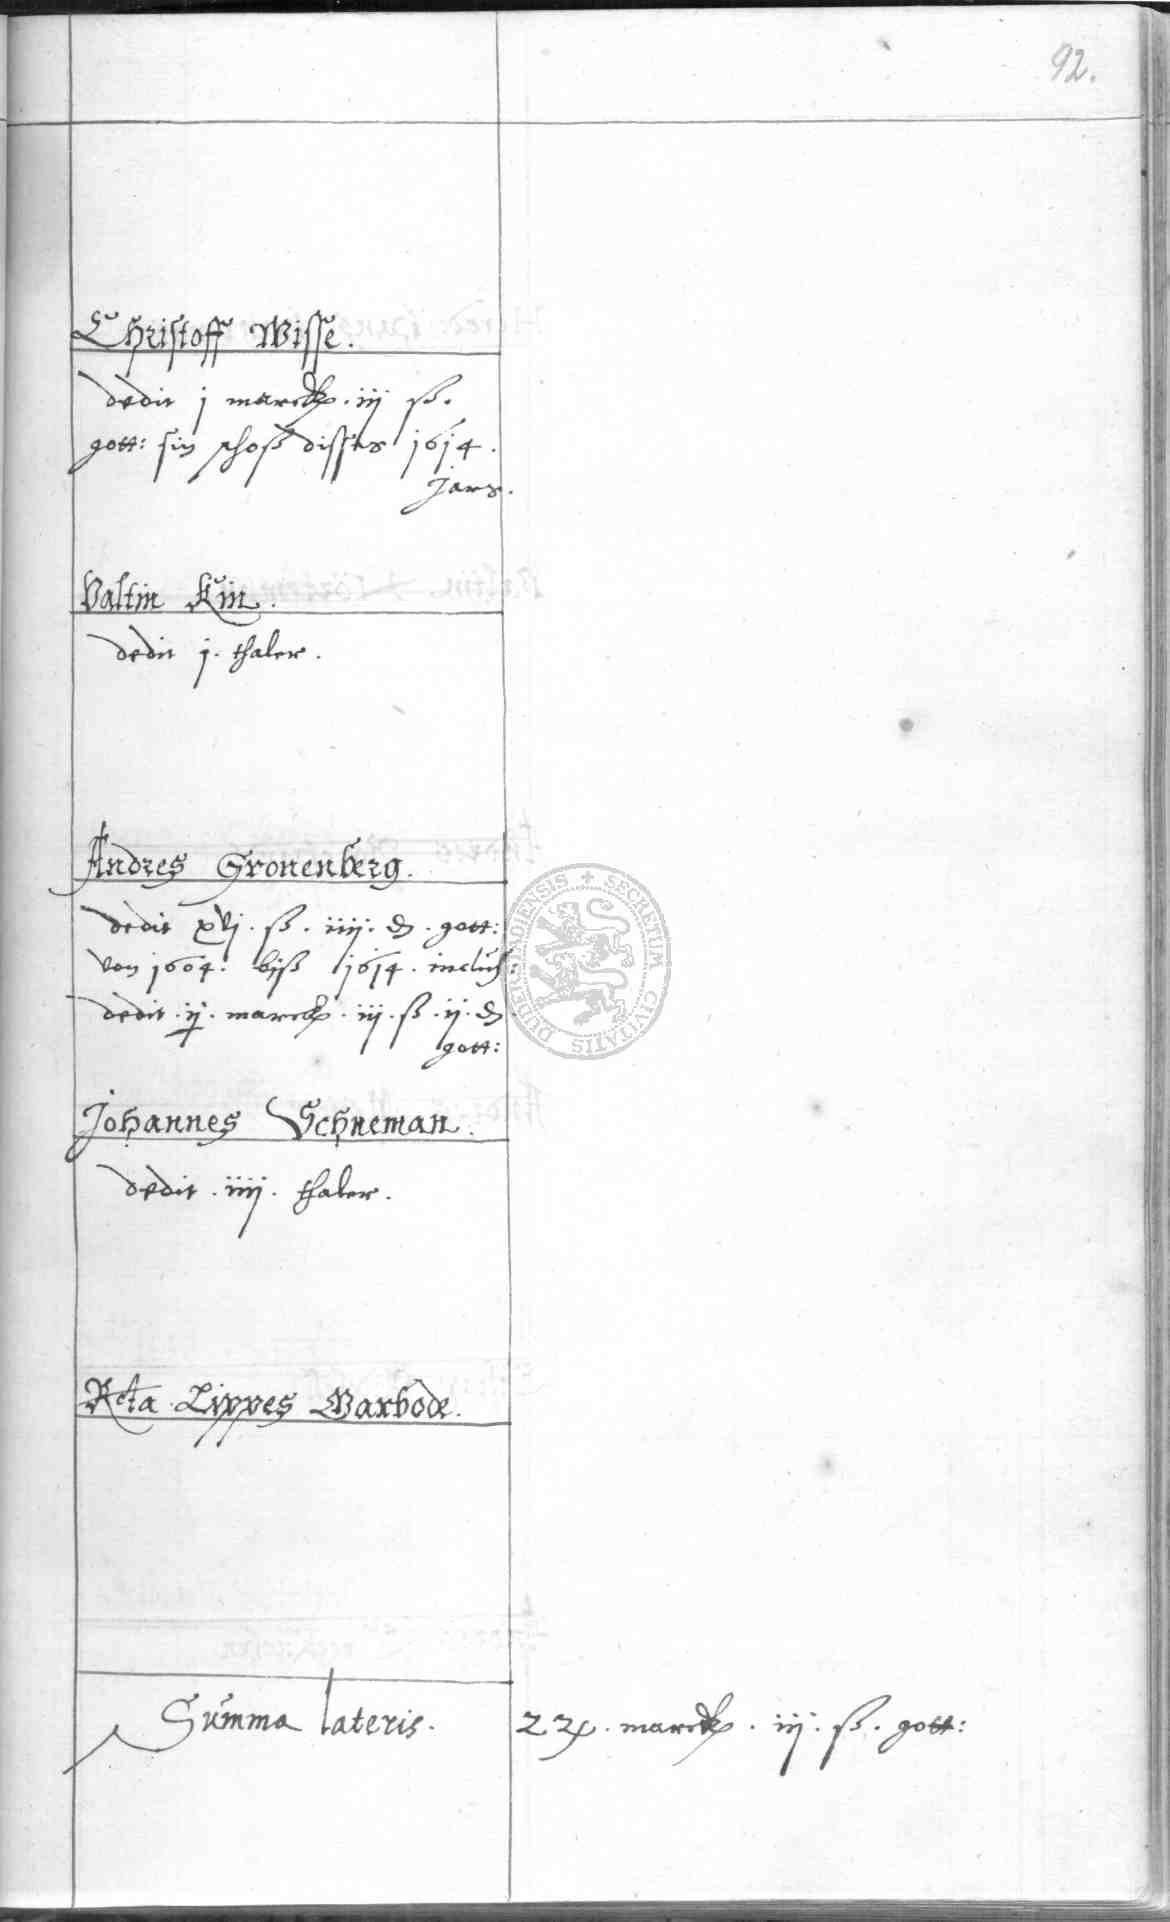 92.
Christoff Wisse.
dedit j marck. iij ß.
gott: sin schoß disses 1614.
Jars.
Valtin Kin.
dedit j. thaler.
Andres Gronenberg.
dedit xvj. ß. iiij. ₰. gott:
von 1604. biß 1614. inclus:
dedit. ij. marck. iij. ß. ij. ₰
gott:
Johannes Schneman.
dedit. iiij. thaler.
Lippes Warbode.
Summa lateris. marck. iij. ß. gott:
SECRETUM CIVITATIS DUDERSTADIENSIS